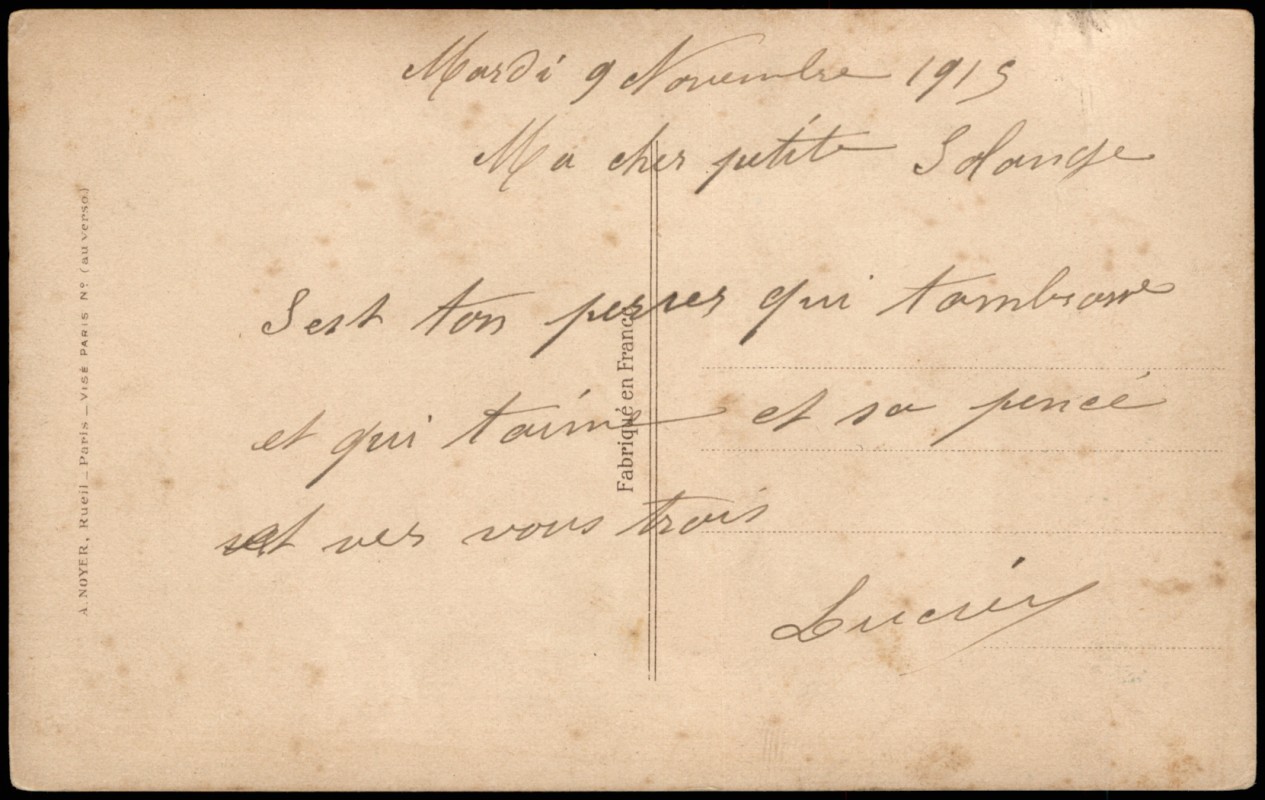 Mardi 9 Novembre 1915
Ma cher petite Solange
Sest ton perres qui tambrasse
et qui taime et sa pencé
est ver vous trois
Lucien
Fabriqué en France
A. NOYER, Rueil _ Paris _ VISÉ PARIS Nº (au verso)